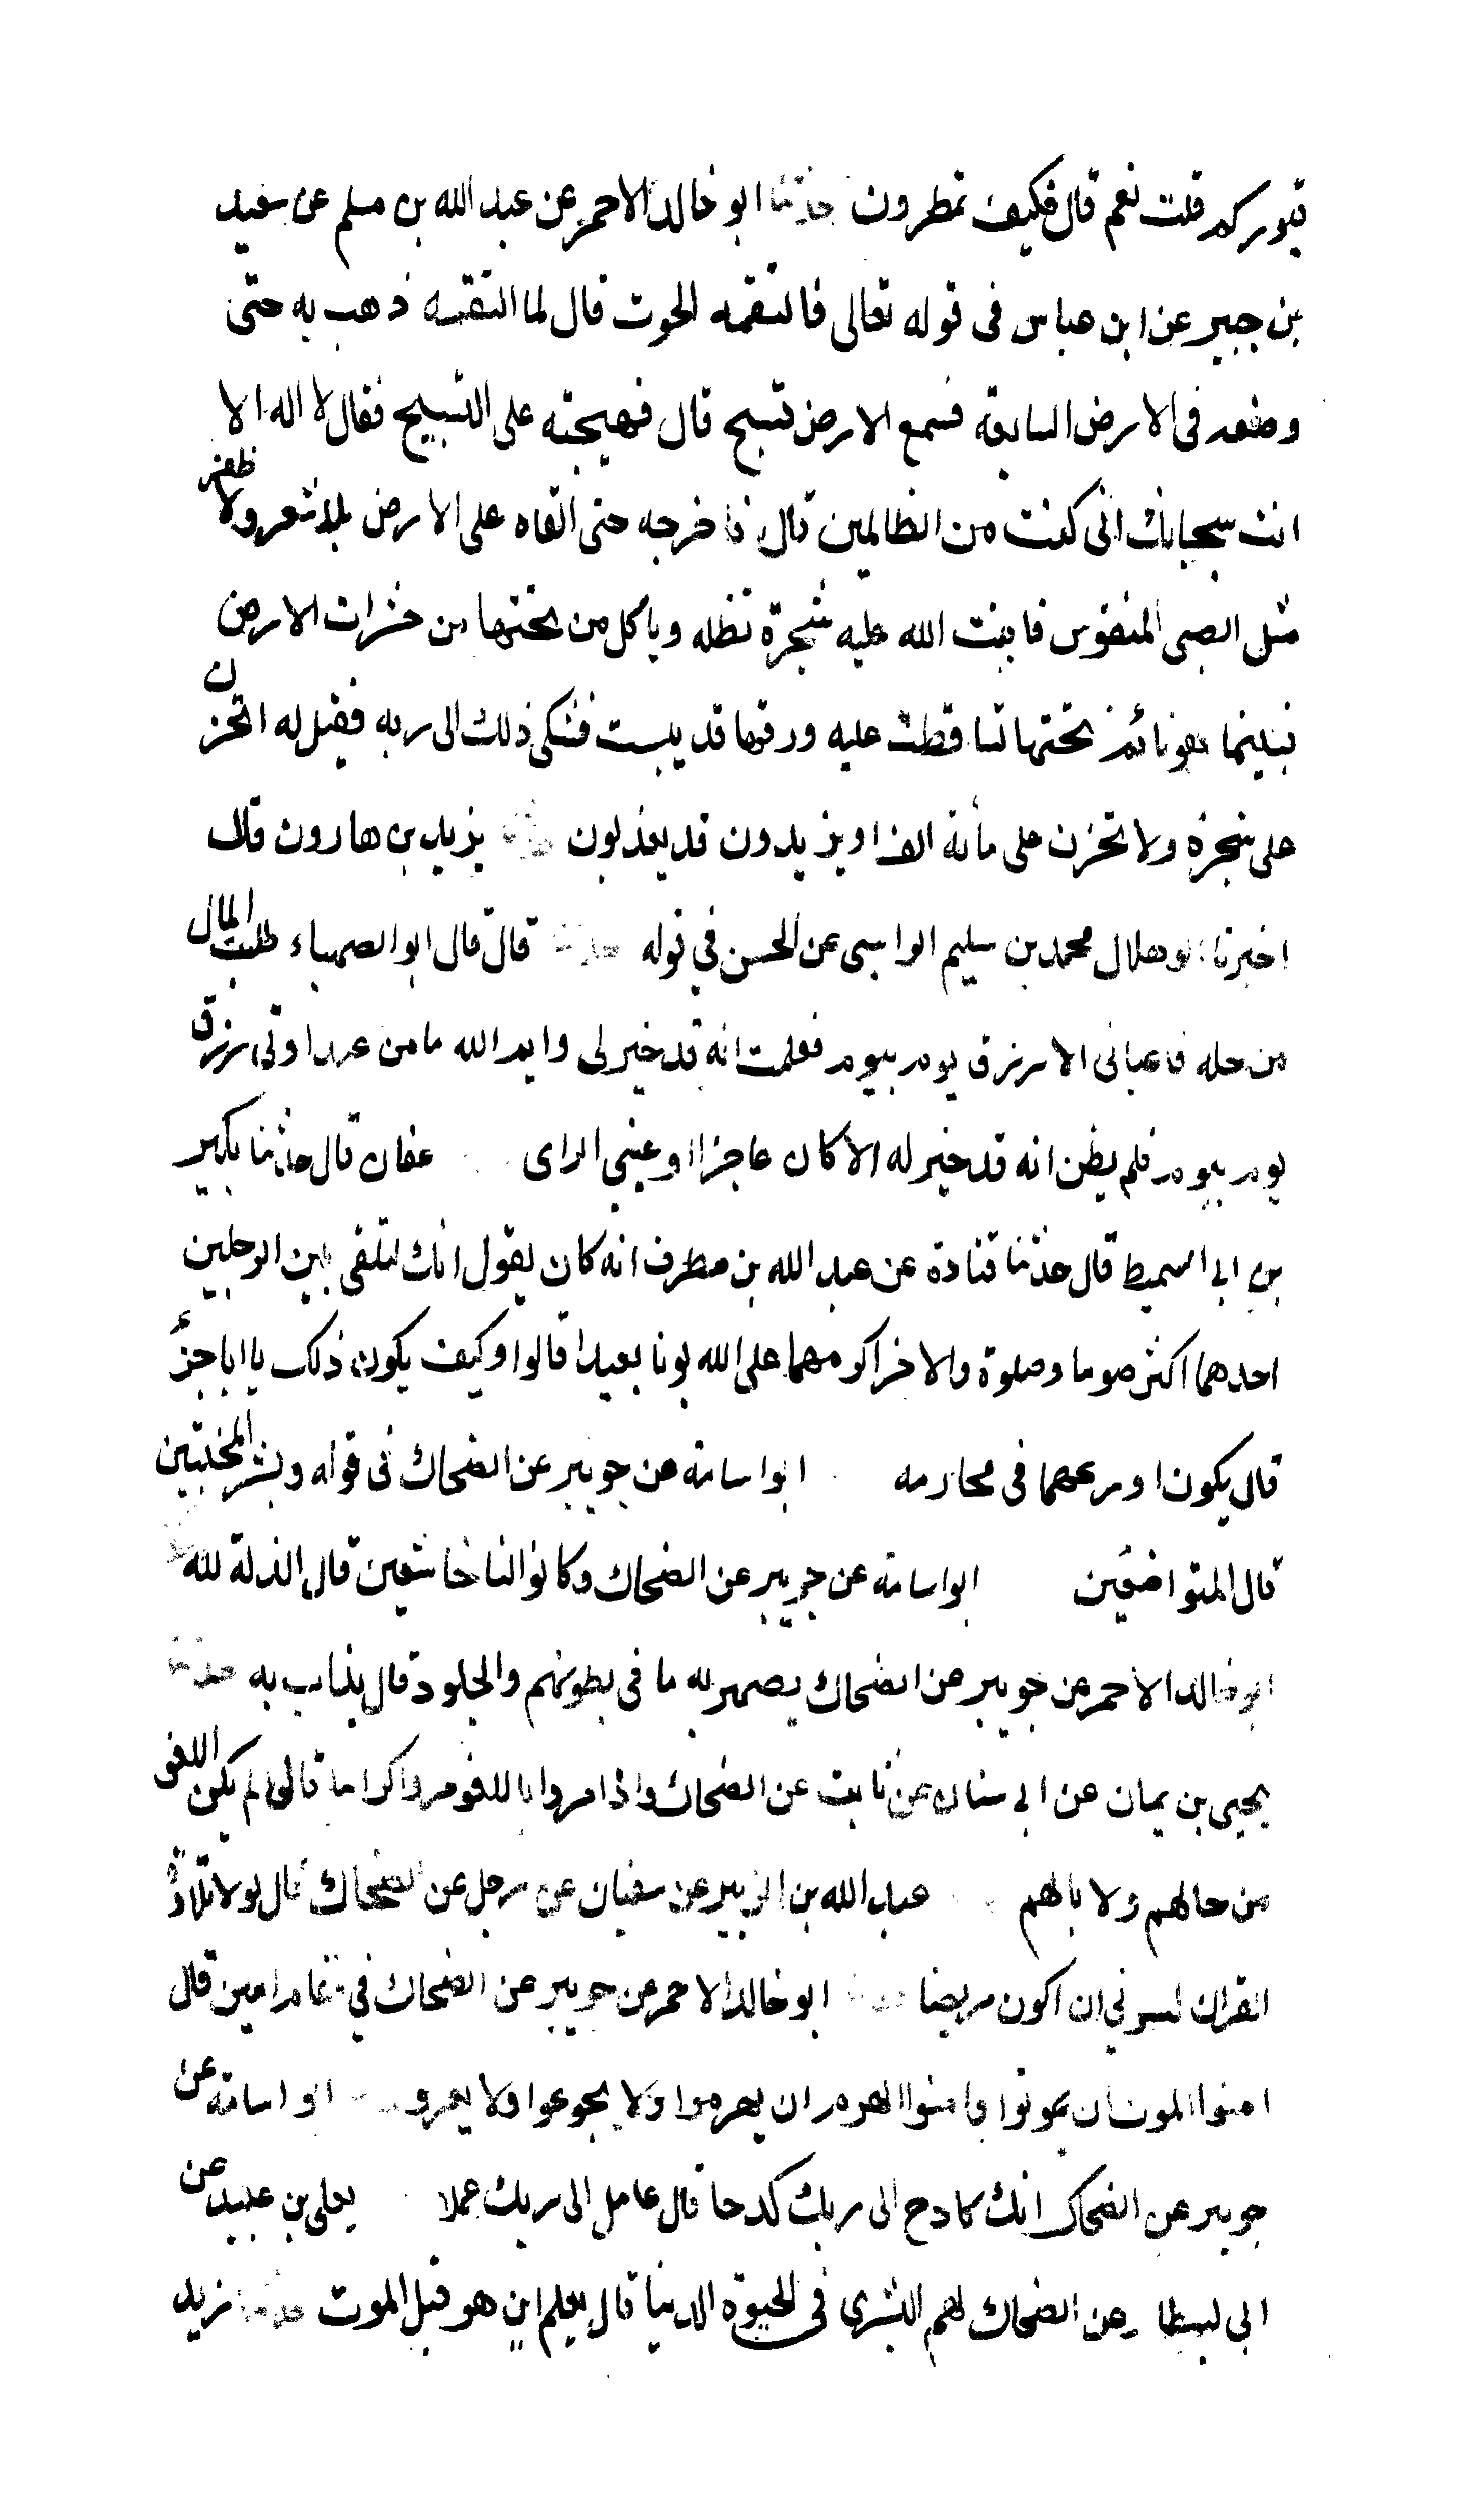 قبوركم قلت نعم قال فكيف تمطرون حدثنا ابو خالد الاحمر عن عبد الله بن مسلم عن سعيد
بن جبير عن ابن عباس فى قوله تعالى فالتقمه الحوت قال لما التقمه ذهب به حتى
وضعه فى الارض السابعة فسمع الارض تسبح قال فهيجته على التسبيح فقال لا اله الا
انت سبحانك انى كنت من الظالمين قال فاخرجه حتى القاه على الارض بلا شعر ولا ظفر
مثل الصبى المنفوس فانبت الله عليه شجرة تظله وياكل من تحتها من خشرات الارض
فبينما هو نائم تحتها تساقطت عليه ورقها قد يبست فشكى ذلك الى ربه فقيل له اتحزن
على شجرة ولا تحزن على مأنة الف او يزيدون قد يعذبون حدثنا يزيد بن هارون قال
اخبرنا ابو هلال محمد بن سليم الراسبى عن الحسن في قوله حدثنا قال قال ابو الصهباء طلبت المال
من حله فاعيانى الا رزق يوم بيوم فعلمت انه قد خير لى وايم الله ما من عبد اوتى رزق
يوم بيوم فلم يظن انه قد خير له الا كان عاجزا او غبى الراى عفان قال حدثنا بكير
بن ابى السميط قال حدثنا قتادة عن عبد الله بن مطرف انه كان يقول انك لتلقى بين الرجلين
احدهما اكثر صوما وصلوة والاخر اكرمهما على الله بونا بعيدا قالوا وكيف يكون ذلك يا ابا جزء
قال يكون اورعهما فى محارمه ابو اسامة عن جويبر عن الضحاك فى قوله وبشر المخبتين
قال المتواضعين ابو اسامة عن جويبر عن الضحاك وكانوا لنا خاشعين قال الذلة لله
ابو خالد الاحمر عن جويبر عن الضحاك يصهر به ما فى بطونهم والجلود قال يذاب به حدثنا
يحيى بن يمان عن ابى سنان عن ثابت عن الضحاك واذا مروا باللغو مروا كراما قال لم يكن اللغو
من حالهم ولا بالهم عبد الله بن الزبير عن سفيان عن رجل عن الضحاك قال لولا تلاوة
القران لسرنى ان اكون مريضا ابو خالد الاحمر عن جويبر عن الضحاك في مقام امين قال
امنوا الموت ان يموتوا وامنوا الهرم ان يهرموا ولا يجوعوا ولا يعروا ابو اسامة عن
جويبر عن الضحاك انك كادح الى ربك كدحا قال عامل الى ربك عملا يعلى بن عبيد عن
ابى بسطام عن الضحاك لهم البشرى فى الحيوة الدنيا قال يعلم اين هو قبل الموت حدثنا يزيد